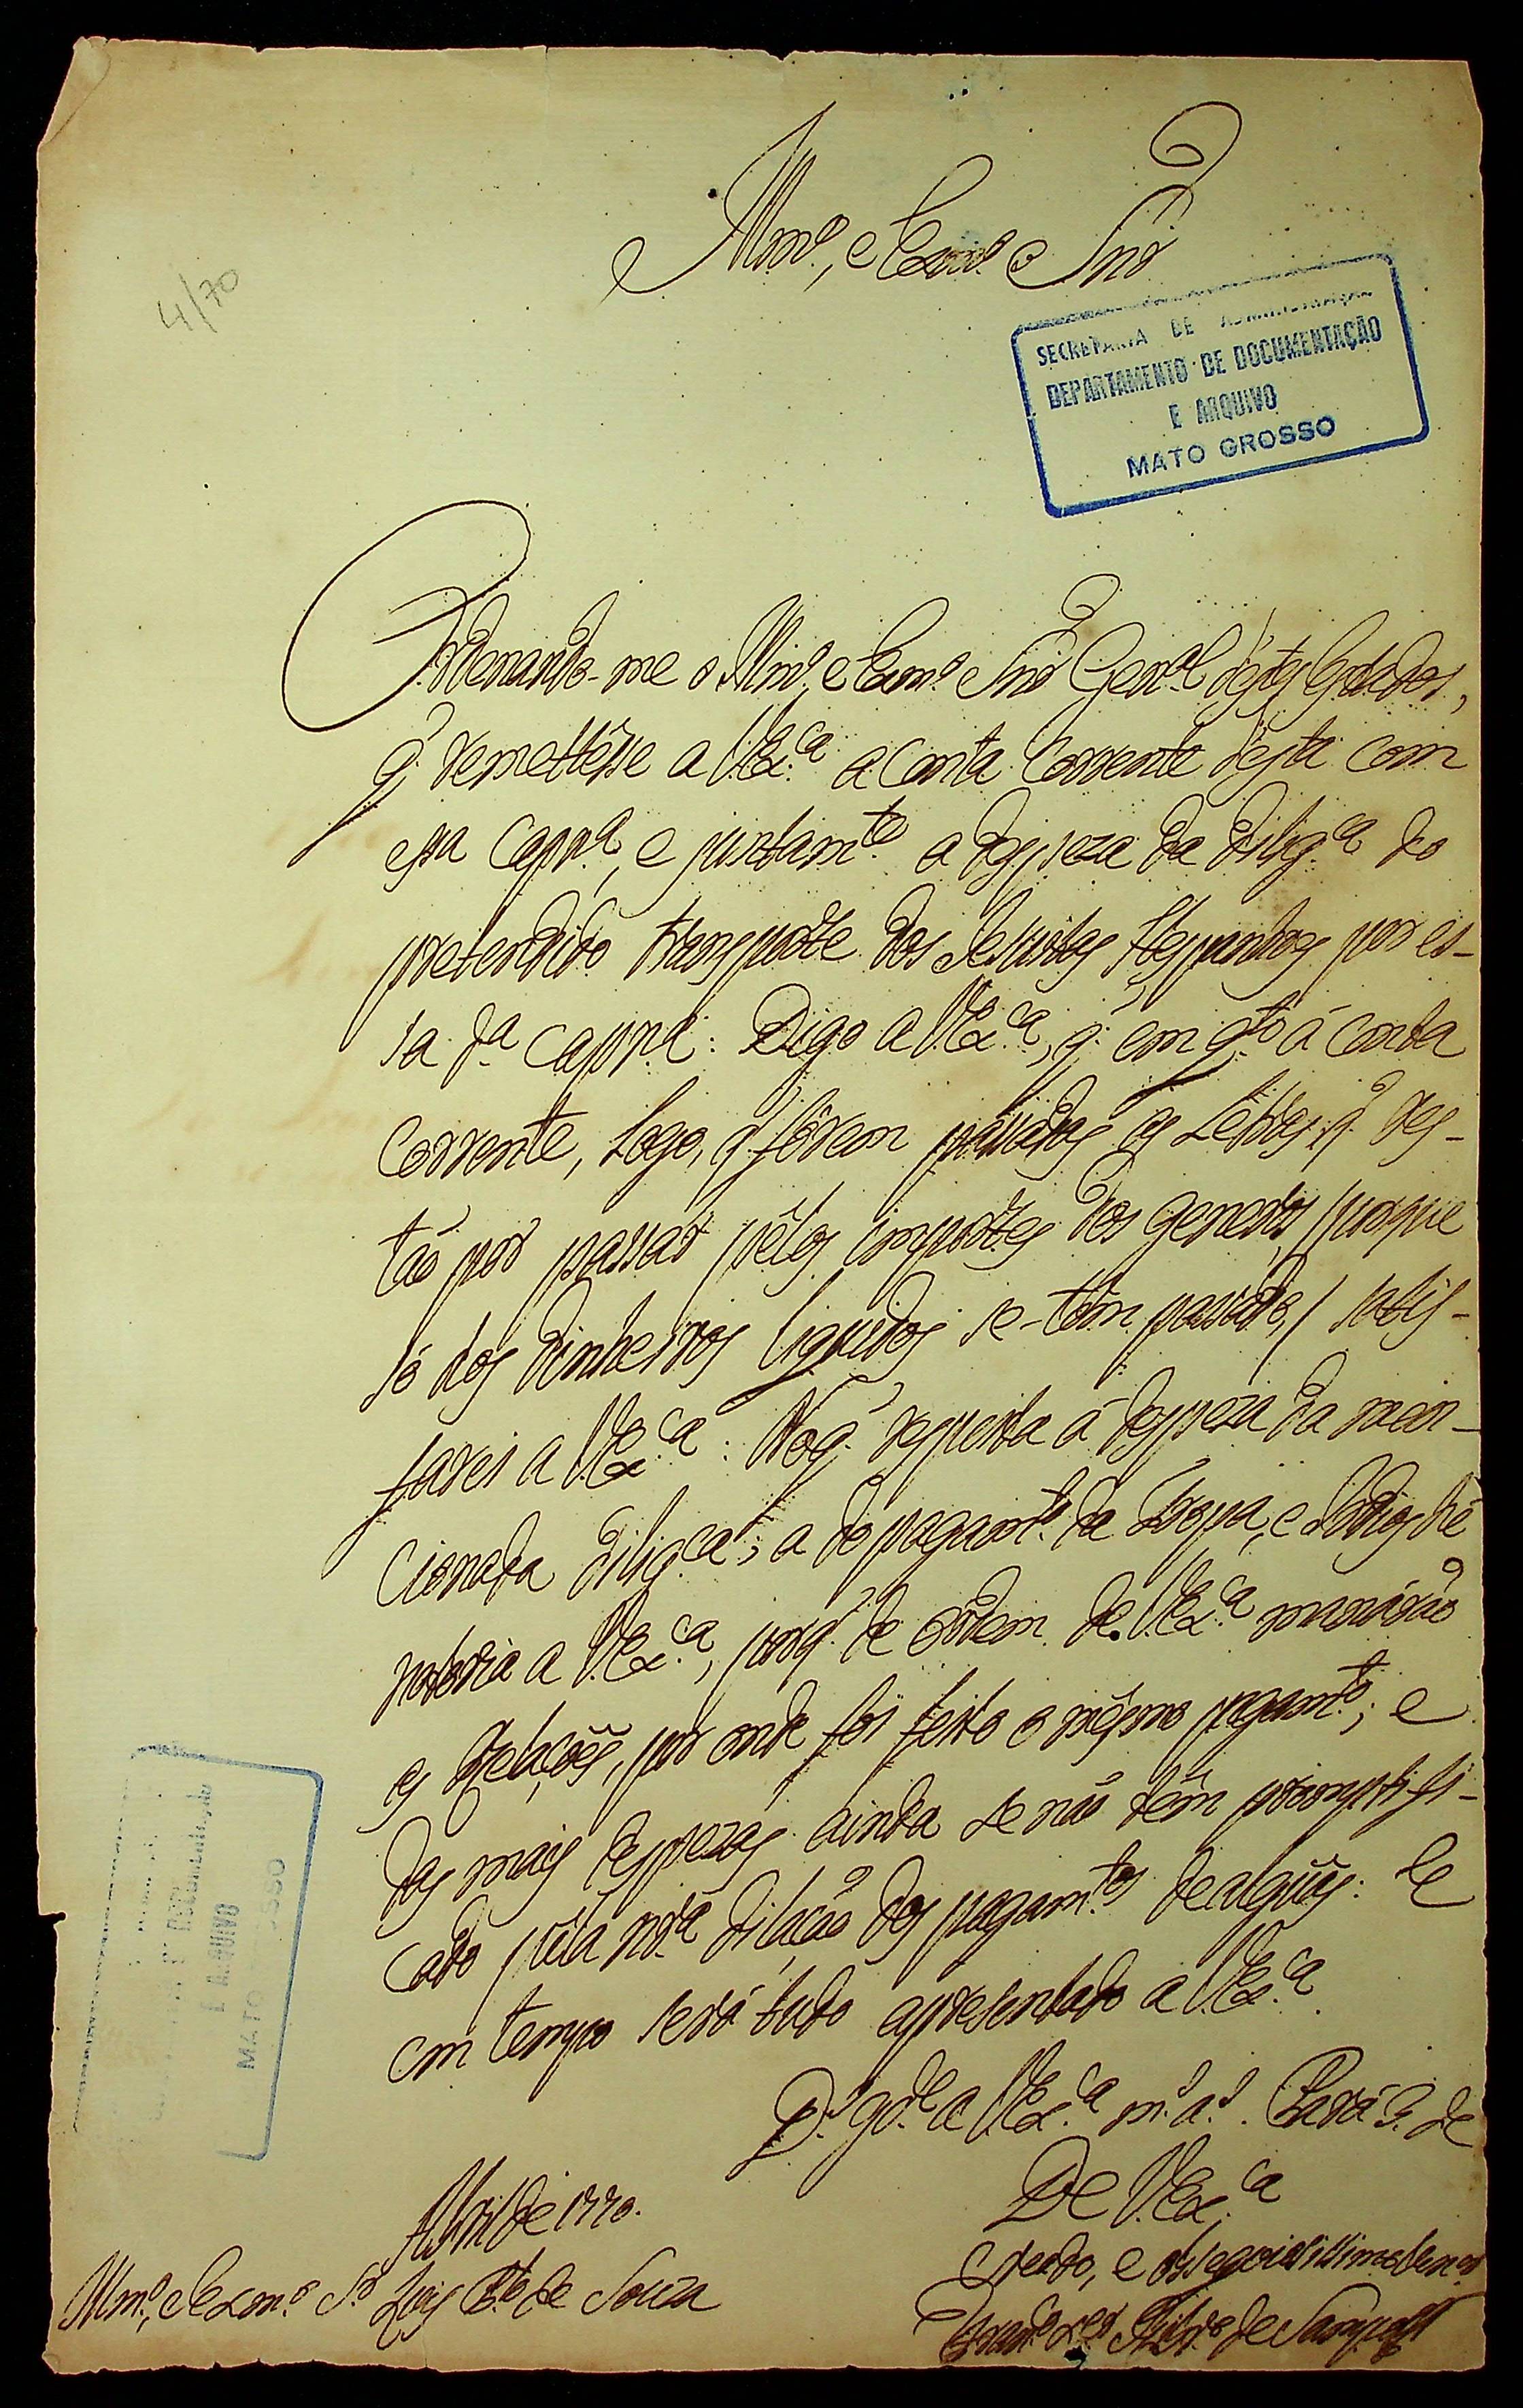 Illmo., e Exmo. Snr
4/70
SECRETARIA DE ADMINISTRAÇÃO
DEPARTAMENTO DE DOCUMENTAÇÃO
E ARQUIVO
MATO GROSSO
Ordenando-me o Illmo., e Exmo. Snr Genal destes Estados,
q. remettêsse a V.Exca. a Conta Corrente désta com
essa Cappnia, e juntamte. a despeza da diligca. do
pretendido transporte dos Jesuitas Hespanhoes por es-
sa da Cappnia: Digo a V.Exca., q. em qto. á Conta
Corrente, logo, q. fórem passados as Letras q. res-
tão por passar pêlos importes dos generos, porque
só dos dinheiros liquidos se-têm passado, satis-
farei a V.Exca.: No q. respeita á despeza da men-
cionada diligca., a do pagamto. da Tropa, e Indios hé
notoria a V.Exca., porq. de ordem de V.Exca. marcárão
as Relações, por onde foi feito o mêsmo pagamto.; e
das mais despezas ainda se não têm promptifi-
cado pêla nra. dilação dos pagamtos. de alguns: E
em tempo será tudo apresentado a V.Exca.
Ds. gde. a V.Exca. ms. as. Pará 3 de
Abril de 1770.
De V.Exca.
Creado, e obsequiosissimo
Illmo., e Exmo. Sr Luis Pto. de Souza
de Sampayo
E ARQUIVO
MATO GROSSO